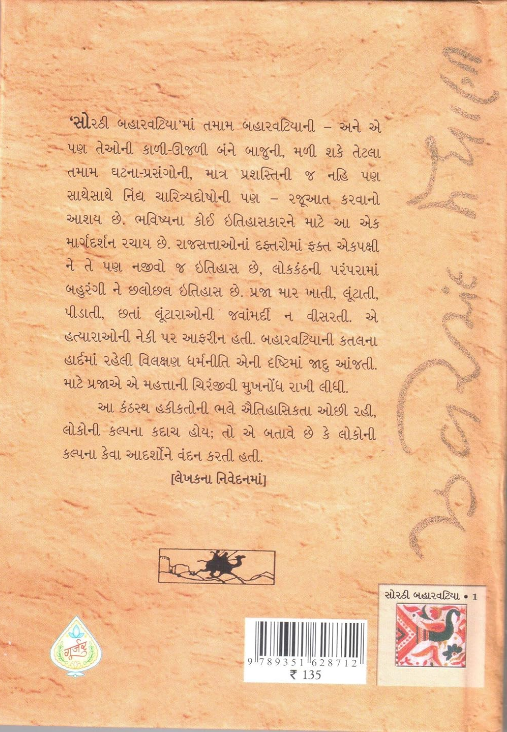 'સોરઠી બહારવટિયા'માં તમામ બહારવટિયાની – અને એ
પણ તેઓની કાળી-ઊજળી બંને બાજુની, મળી શકે તેટલા
તમામ ઘટના-પ્રસંગોની, માત્ર પ્રશસ્તિની જ નહિ પણ
સાથેસાથે નિંદ્ય ચારિત્ર્યદોષોની પણ – રજૂઆત કરવાનો
આશય છે. ભવિષ્યના કોઈ ઇતિહાસકારને માટે આ એક
માર્ગદર્શન રચાય છે. રાજસત્તાઓનાં દફ્તરોમાં ફક્ત એકપક્ષી
ને તે પણ નજીવો જ ઇતિહાસ છે, લોકકંઠની પરંપરામાં
બહુરંગી ને છલોછલ ઇતિહાસ છે. પ્રજા માર ખાતી, લૂંટાતી,
પીડાતી, છતાં લૂંટારાઓની જવાંમર્દી ન વીસરતી. એ
હત્યારાઓની નેકી પર આફરીન હતી. બહારવટિયાની કતલના
હાર્દમાં રહેલી વિલક્ષણ ધર્મનીતિ એની દષ્ટિમાં જાદુ આંજતી.
માટે પ્રજાએ એ મહત્તાની ચિરંજીવી મુખનોંધ રાખી લીધી.
આ કંઠસ્થ હકીકતોની ભલે ઐતિહાસિકતા ઓછી રહી,
લોકોની કલ્પના કદાચ હોય; તો એ બતાવે છે કે લોકોની
કલ્પના કેવા આદર્શોને વંદન કરતી હતી.
[લેખકના નિવેદનમાં]
ઝવેરચંદ મેઘાણી
સોરઠી બહારવટિયા • 1
ગૂર્જર
9 789351 628712
₹ 135